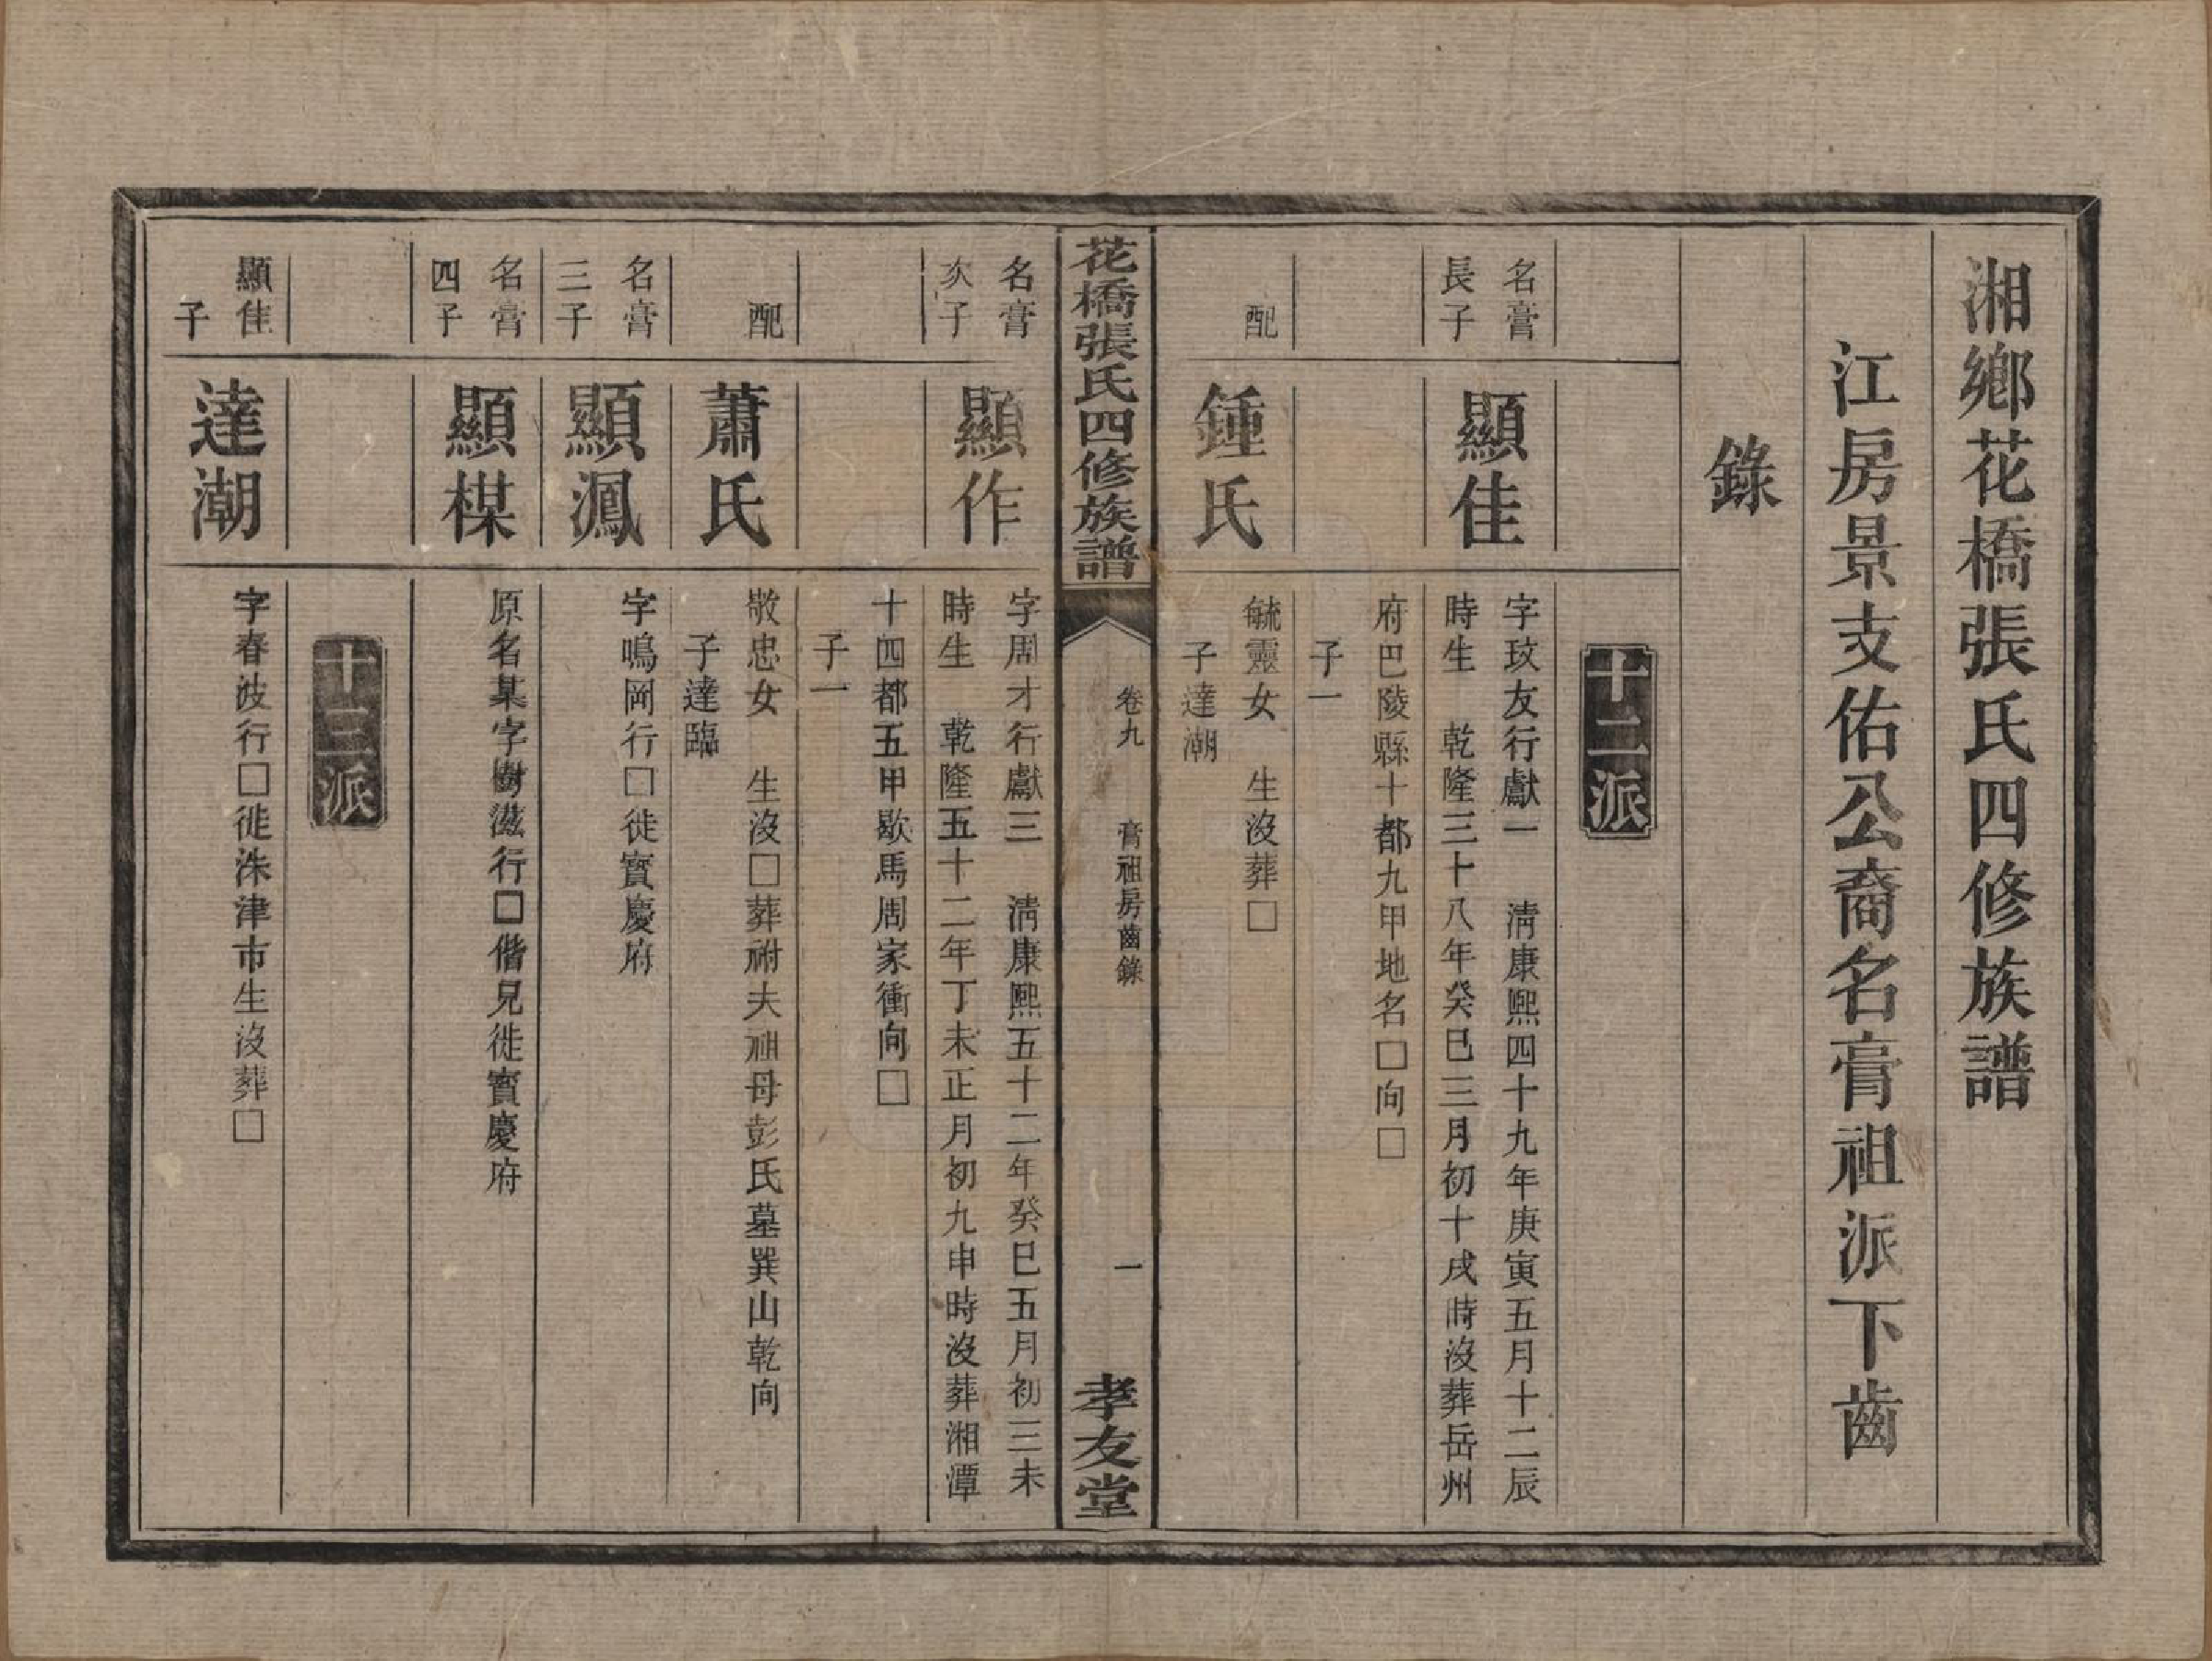 湘鄉花橋張氏四修族譜
江房景支佑公裔名膏祖派下齒
錄
十二派
名膏
長子
顯佳
字玫友行獻一　淸康熙四十九年庚寅五月十二辰
時生　乾隆三十八年癸巳三月初十戌時沒葬岳州
府巴陵縣十都九甲地名□向□
子一
配
鍾氏
毓靈女　生沒葬□
子達潮
花橋張氏四修族譜
卷九
膏祖房齒錄
一
孝友堂
名膏
次子
顯作
字周才行獻三　淸康熙五十二年癸巳五月初三未
時生　乾隆五十二年丁未正月初九申時沒葬湘潭
十四都五甲歇馬周家衝向□
子一
配
蕭氏
敬忠女　生沒□葬祔夫祖母彭氏墓巽山乾向
子達臨
名膏
三子
顯鳳
字鳴岡行□徙寶慶府
名膏
四子
顯楳
原名某字樹滋行□偕兄徙寶慶府
十三派
顯佳
子
達潮
字春波行□徙洙津市生沒葬□